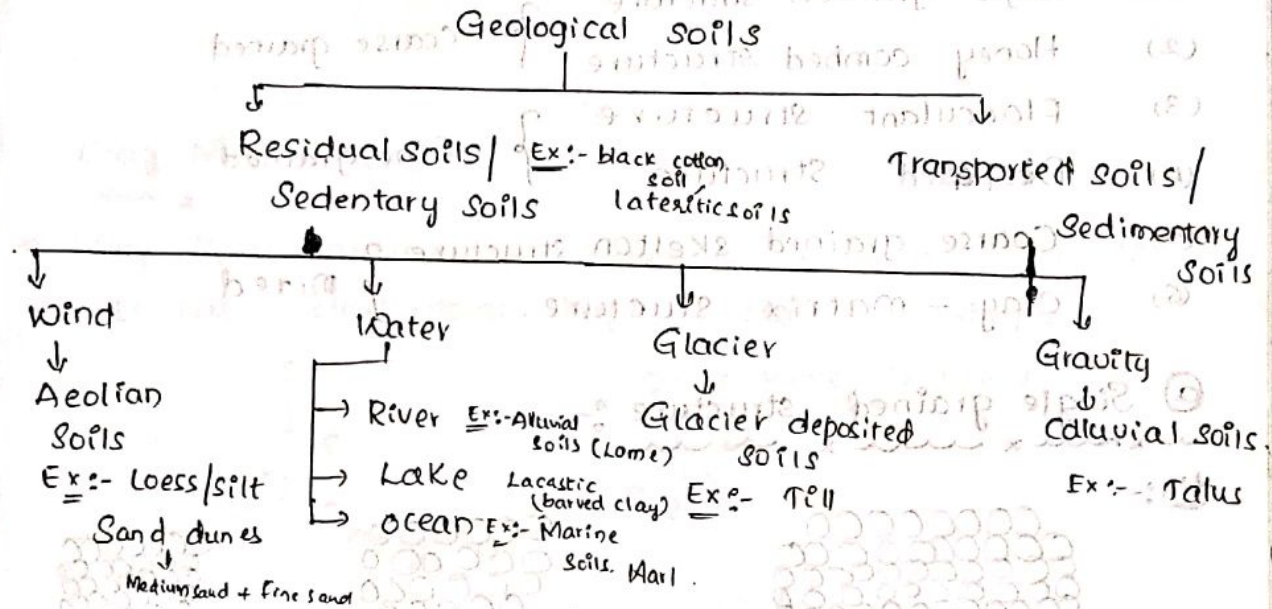 Geological Soils
Residual soils/ Ex:- black cotton
soil,
Sedentary Soils lateritic soils
Transported soils/
Sedimentary
Soils
Wind
Aeolian
Soils
Ex:- Loess/silt
Sand dunes
Medium sand + fine sand
Water
River Ex:- Alluvial
soils (Lome)
Lake Lacastic
(barved clay)
Ocean Ex:- Marine
Soils. Marl.
Glacier
Glacier deposited
soils
Ex:- Till
Gravity
Colluvial soils.
Ex:- Talus